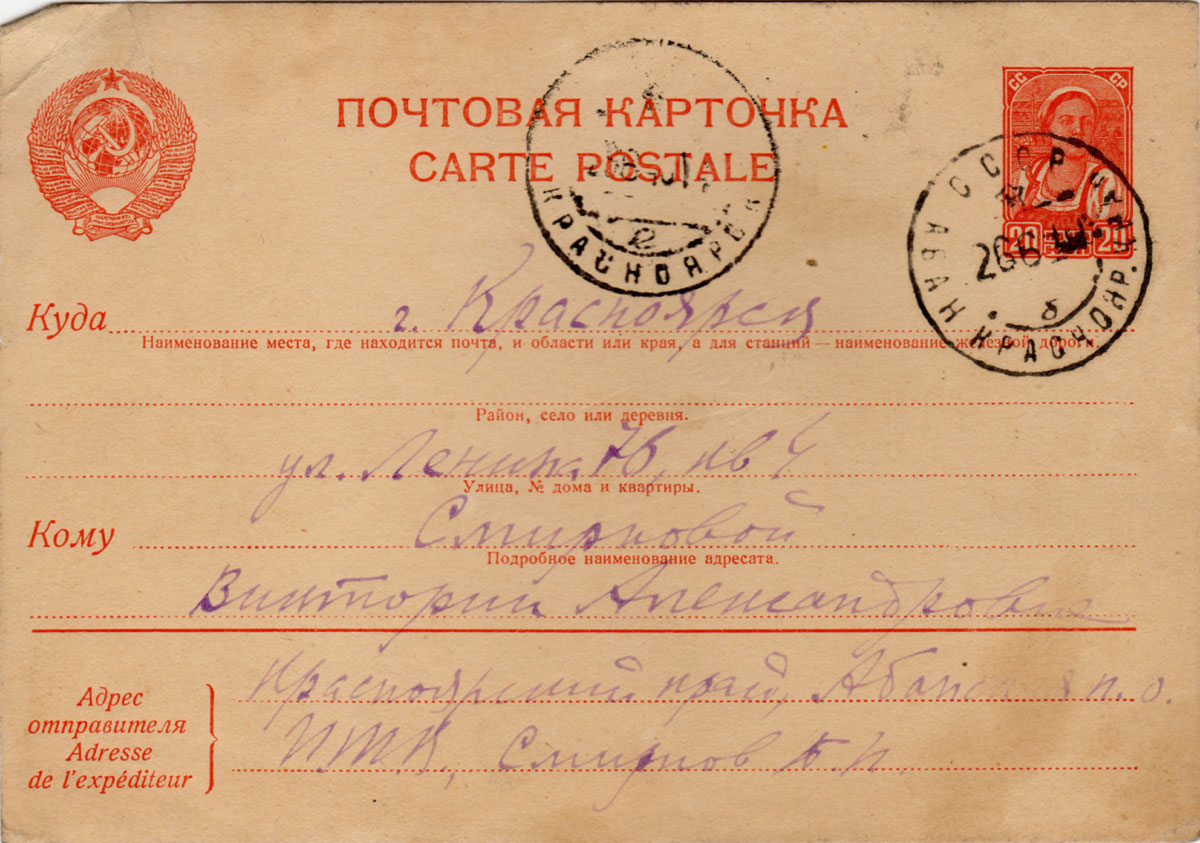 ПОЧТОВАЯ КАРТОЧКА
CARTE POSTALE
СС СР
20 20
СССР
АБАН КРАСНОЯР.
КРАСНОЯРСК
Куда г. Красноярск
Наименование места, где находится почта, и области или края, а для станций — наименование железной дороги.
Район, село или деревня.
ул. Ленина 76, кв 4
Улица, № дома и квартиры.
Кому Смирновой
Подробное наименование адресата.
Виктории Александровне
Адрес отправителя
Adresse de l'expéditeur
Красноярский край, п.о.
Смирнов